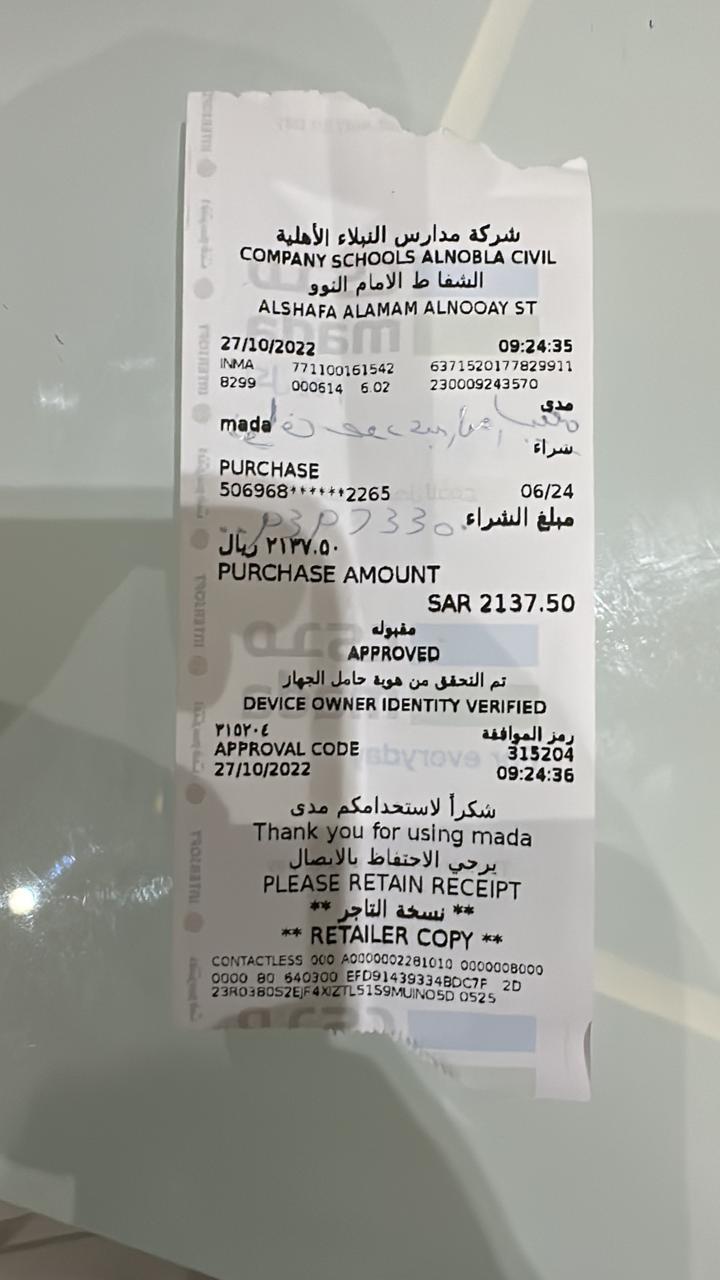 شركة مدارس النبلاء الأهلية
COMPANY SCHOOLS ALNOBLA CIVIL
الشفا ط الامام النوو
ALSHAFA ALAMAM ALNOOAY ST
27/10/2022 09:24:35
INMA 771100161542 6371520177829911
8299 000614 6.02 230009243570
مدى
mada
شراء
PURCHASE
506968******2265 06/24
مبلغ الشراء
٢١٣٧.٥٠ ريال
PURCHASE AMOUNT
SAR 2137.50
مقبوله
APPROVED
تم التحقق من هوية حامل الجهاز
DEVICE OWNER IDENTITY VERIFIED
رمز الموافقة ٣١٥٢٠٤
APPROVAL CODE 315204
27/10/2022 09:24:36
شكراً لاستخدامكم مدى
Thank you for using mada
يرجي الاحتفاظ بالايصال
PLEASE RETAIN RECEIPT
** نسخة التاجر **
** RETAILER COPY **
CONTACTLESS 000 A0000002281010 0000008000
0000 80 640300 EFD91439334BDC7F 2D
23R03B0S2EJF4XIZTL51S9MUINO5D 0525